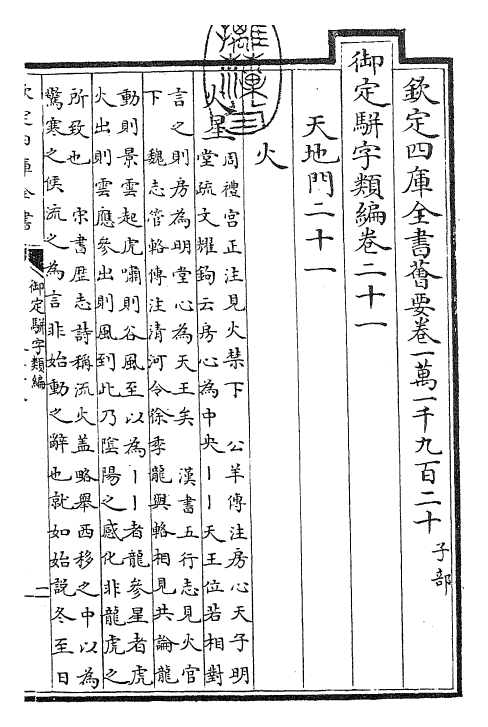 欽定四庫全書薈要卷一萬一千九百二十 子部
御定駢字類編卷二十一
天地門二十一
火
火星
周禮宮正注見火禁下 公羊傳注房心天子明
堂疏文耀鉤云房心為中央丨丨天王位若相對
言之則房為明堂心為天王矣 漢書五行志見火官
下 魏志管輅傳注清河令徐季龍與輅相見共論龍
動則景雲起虎嘯則谷風至以為丨丨者龍參星者虎
火出則雲應參出則風到此乃陰陽之感化非龍虎之
所致也 宋書歴志詩稱流火盖略舉西移之中以為
驚寒之候流之為言非始動之辭也就如始說冬至日
欽定四庫全書
御定駢字類編